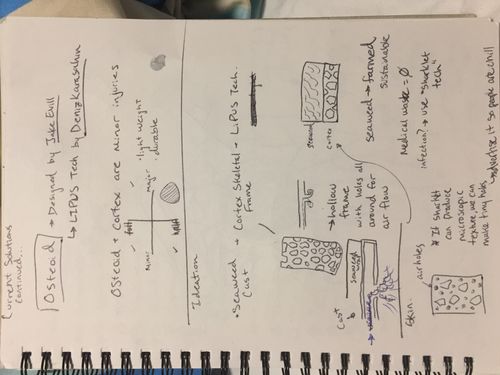 Current Solutions
Continued...
Osteoid → Designed by Jake Evill
↳ LIPUS Tech by Deniz Karasahin
Osteoid + Cortex are minor injuries
major
minor
• light weight
• durable
Ideation
• Seaweed + Cortex Skeletal + LIPUS Tech.
Cast
Frame
→ hollow
frame
with holes all
around for
air flow
cortex
seaweed → farmed
sustainable
Medical waste = ∅
infection? → use "sharklet
tech"
Cast
seaweed
Skin
air holes
* If sharklet
can produce
microscopic
texture, we can
make tiny holes
so people are chill